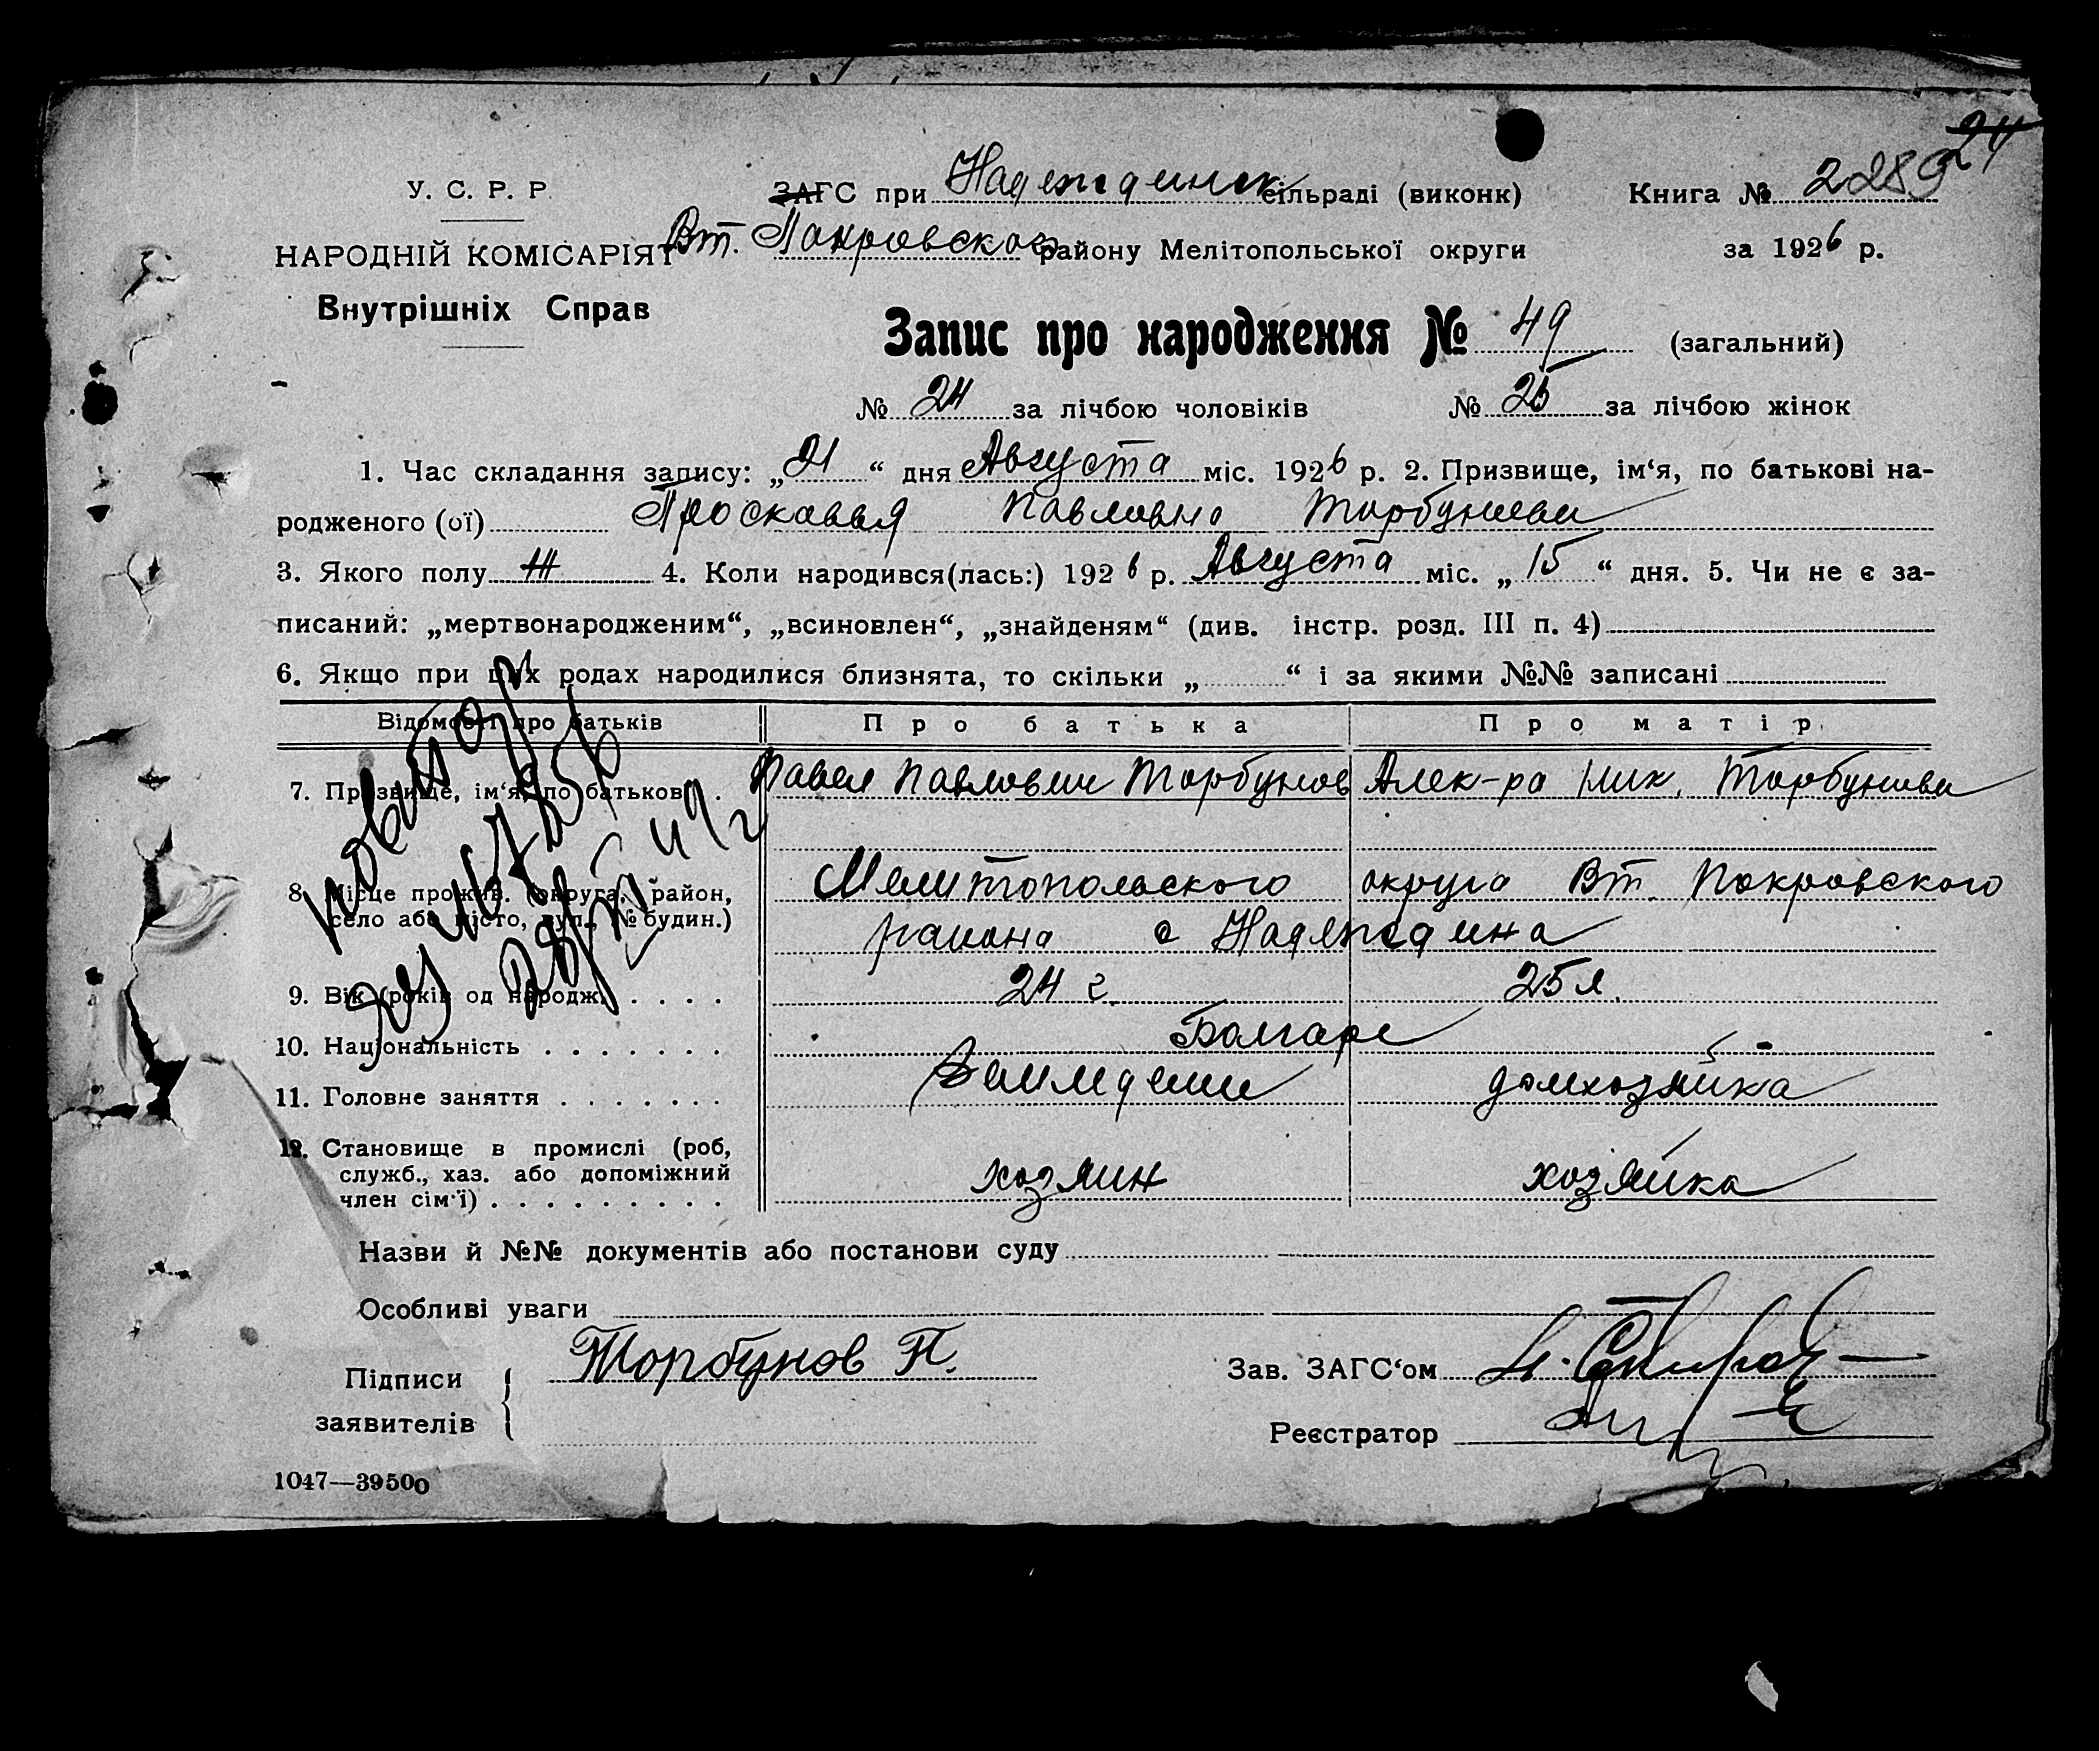 24
У. С. Р. Р. ЗАГС при Надеждинск сільраді (виконк) Книга № 2289
НАРОДНІЙ КОМІСАРІЯТ Вт. Покровского району Мелітопольської округи за 1926 р.
Внутрішніх Справ
Запис про народження № 49 (загальний)
№ 24 за лічбою чоловіків № 25 за лічбою жінок
1. Час складання запису: „21“ дня Августа міс. 1926 р. 2. Призвище, ім‘я, по батькові на-
родженого (ої) Просковья Павловна Торбунова
3. Якого полу Ж 4. Коли народився(лась:) 1926 р. Августа міс. „15“ дня. 5. Чи не є за-
писаний: „мертвонародженим“, „всиновлен“, „знайденям“ (див. інстр. розд. III п. 4)
6. Якщо при цих родах народилися близнята, то скільки „ “ і за якими №№ записані
Відомості про батьків Про батька Про матір
7. Призвище, ім‘я, по батькові . Павел Павлович Торбунов Алек-ра Ник. Торбунова
8. Місце прожив. (округа, район, Мелитопольского округа Вт. Покровского
село або місто, вул., № будин.) района с Надеждина
9. Вік (років од народж.) . . . . 24 г. 25 л.
10. Національність . . . . . . . Болгаре
11. Головне заняття . . . . . . . домхозяйка
12. Становище в промислі (роб,
служб., хаз. або допоміжний хозяин хозяйка
член сім‘ї) . . . . . . . . .
Назви й №№ документів або постанови суду
Особливі уваги
Підписи Торбунов П. Зав. ЗАГС‘ом
заявителів Реєстратор
1047—39500